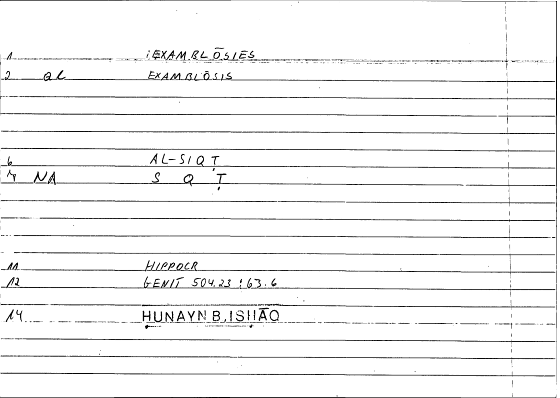 1 iEXAMBLŌSIES
2 al EXAMBLŌSIS
6 AL-SIQṬ
7 NA S Q Ṭ
11 HIPPOCR
12 GENIT 504.23 : 63.6
14 ḤUNAYN B. ISḤĀQ